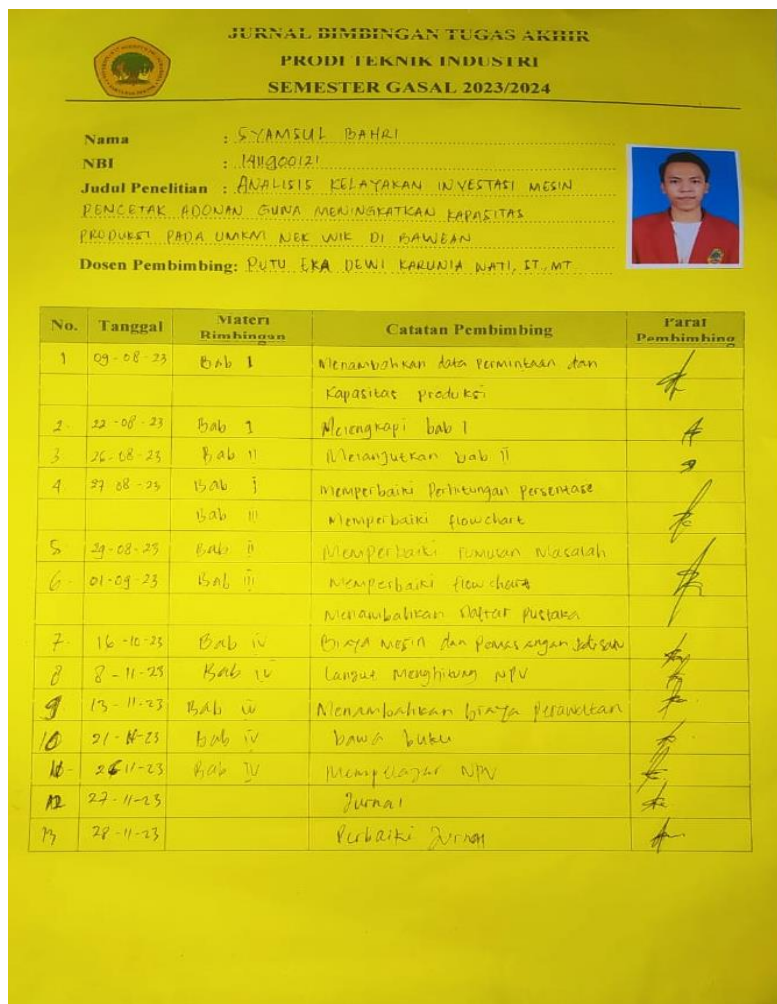 JURNAL BIMBINGAN TUGAS AKHIR
PRODI TEKNIK INDUSTRI
SEMESTER GASAL 2023/2024
Nama : SYAMSUL BAHRI
NBI : 1411900121
Judul Penelitian : ANALISIS KELAYAKAN INVESTASI MESIN
PENCETAK ADONAN GUNA MENINGKATKAN KAPASITAS
PRODUKSI PADA UMKM NEK WIK DI BAWEAN
Dosen Pembimbing: PUTU EKA DEWI KARUNIA WATI, ST., MT
No. Tanggal Materi Bimbingan Catatan Pembimbing Paraf Pembimbing
1 09-08-23 Bab 1 Menambahkan data Permintaan dan
Kapasitas produksi
2. 22-08-23 Bab 1 Melengkapi bab 1
3. 26-08-23 Bab II Melanjutkan bab II
4. 27-08-23 Bab I Memperbaiki Perhitungan Persentase
Bab III Memperbaiki flowchart
5 29-08-23 Bab II Memperbaiki rumusan Masalah
6. 01-09-23 Bab III Memperbaiki flowchart
Menambahkan Daftar Pustaka
7. 16-10-23 Bab IV Biaya Mesin dan Pemasangan
8 8-11-23 Bab IV Lanjut Menghitung NPV
9 13-11-23 Bab IV Menambahkan biaya Perawatan
10 21-11-23 bab IV bawa buku
11- 26-11-23 Bab IV Mempelajar NPV
12 27-11-23 Jurnal
13 28-11-23 Perbaiki Jurnal